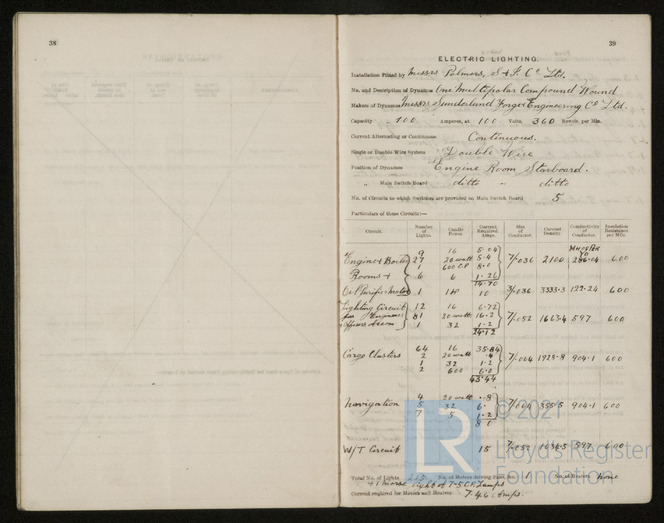 38
39
ELECTRIC LIGHTING.
Installation Fitted by Messrs Palmers, S & I. Co Ltd.
No. and Description of Dynamos One Multipolar Compound Wound
Makers of Dynamos Messrs Sunderland Forge & Engineering Co Ltd.
Capacity 100 Amperes, at 100 Volts, 360 Revols. per Min.
Current Alternating or Continuous Continuous.
Single or Double Wire System Double Wire
Position of Dynamos Engine Room Starboard.
" Main Switch Board ditto - ditto
No. of Circuits to which Switches are provided on Main Switch Board 5
Particulars of these Circuits:—
Circuit. Number of Lights. Candle Power. Current Required. Amps. Size of Conductor. Current Density. Conductivity of Conductor. Insulation Resistance per Mile.
9 16 5.04
Engine & Boiler 27 20 watt 5.4 7/.036 2100 286.04 600
1 600 C.P 8.0
Rooms & 6 6 1.26
14.70
Oil Purifier Motor 1 10 3/.036 3333.3 122.24 600
Lighting Circuit 12 16 6.72
for Engineers 81 20 watt 16.2 7/.052 1663.4 597 600
Officers &c 1 32 1.2
24.12
64 16 35.84
Cargo Clusters 2 20 watt .4 7/.064 1928.8 904.1 600
1 32 1.2
2 600 6.0
43.44
4 20 watt .8
Navigation 5 32 6. 7/.064 355.5 904.1 600
7 5 1.2
8.0
W/T Circuit 15 7/.052 597 600
Total No. of Lights No. of Motors driving Fans, &c. 1 No. of Heaters None
+ 1 morse light of 7-5 C.P. Lamps
Current required for Motors and Heaters 7.46 Amps.
© 2021
LR
Lloyd's Register
Foundation